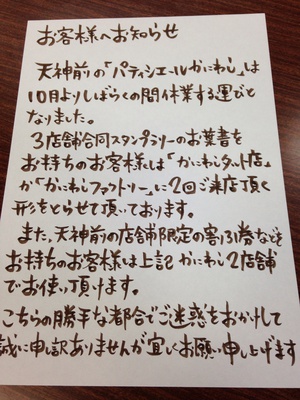 お客様へお知らせ
天神前の「パティシエールかにわし」は
10月よりしばらくの間休業する運びと
なりました。
3店舗合同スタンプラリーのお葉書を
お持ちのお客様は「かにわしタルト店」
か「かにわしファクトリー」に2回ご来店頂く
形をとらせて頂いております。
また、天神前の店舗限定の割引券などを
お持ちのお客様は上記かにわし2店舗
でお使い頂けます。
こちらの勝手な都合でご迷惑をおかけして
誠に申し訳ありませんが宜しくお願い申し上げます